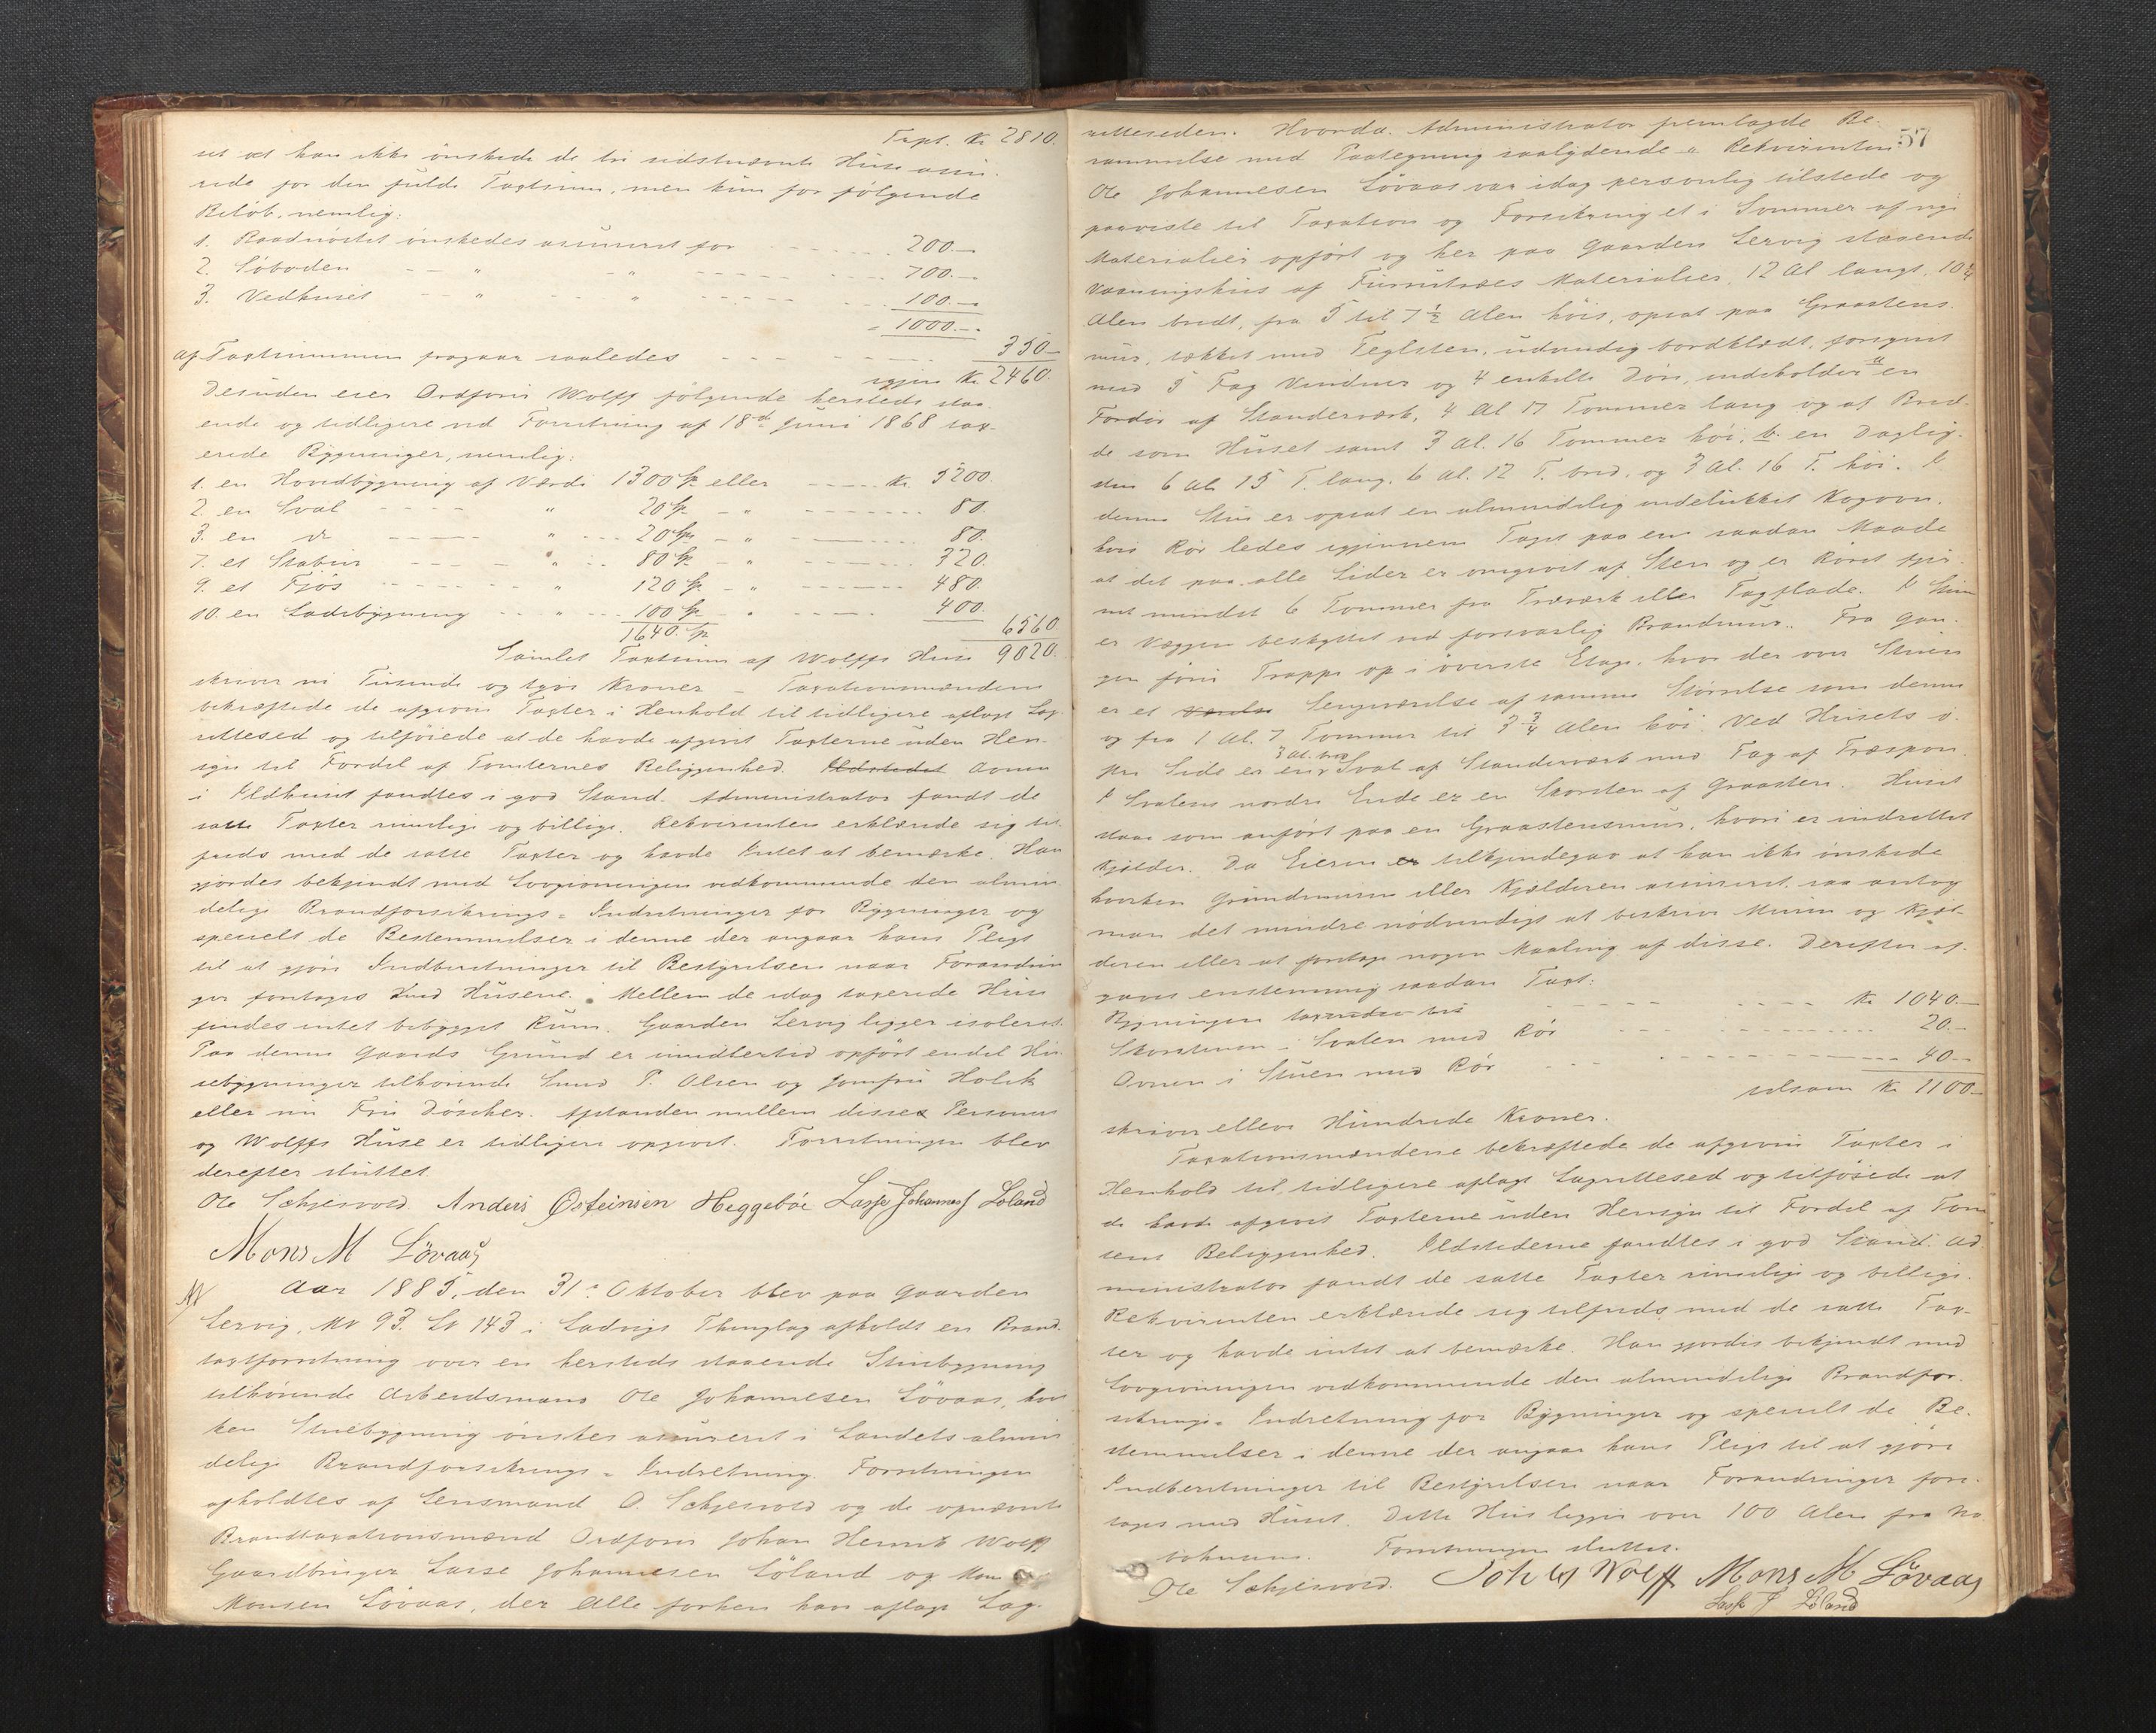 Trpt. Kr 2810.
set at han ikke ønskede de tri sidstnævnte Huse assu-
rede for den fulde Taxtsum, men kun for følgende
Beløb, nemlig:
1. Baadnøstet ønskedes assureret for - - - - 200.—
2. Søboden - - " - " - - - - - 700.—
3. Vedhuset - " - " - - - - - 100.—
= 1000.—
af Taxtsummen fragaar saaledes - - - - - - 350—
igjen Kr. 2460.
Desuden eier Ordfører Wolff følgende hersteds staa-
ende og tidligere ved Forretning af 18de Juni 1868 tax-
erede Bygninger, nemlig:
1. en Hovedbygning af Værdi 1300 Sp. eller - - - Kr. 5200.
2. en Sval - - - - " 20 Sp. - " - - - - 80.
3. en do - - - - " - - - 20 Sp. - " - - - - 80.
7. et Stabur - - - - " - - 80 Sp. - " - - - - 320.
9. et Fjøs - - - - - " 120 Sp. - " - - - - 480.
10. en Ladebygning - - " - - - 100 Sp. " - - - - 400.
1640. Sp. 6560.
Samlet Taxtsum af Wolffs Huse 9020.
skriver ni Tusende og tyve Kroner — Taxationsmændene
bekræftede de afgivne Taxter i Henhold til tidligere aflagt Lag-
rettesed og tilføiede at de havde afgivet Taxterne uden Hen-
syn til Fordel af Tomternes Beliggenhed. Ildstedet Ovnen
i Ildhuset fandtes i god Stand. Administrator fandt de
satte Taxter rimelige og billige. Rekvirenten erklærede sig til-
freds med de satte Taxter og havde Intet at bemærke. Han
gjordes bekjendt med Lovgivningen vedkommende den almin
delige Brandforsikrings = Indretninger for Bygninger og
specielt de Bestemmelser i denne der angaar hans Pligt
til at gjøre Indberetninger til Bestyrelsen naar Forandrin
ger foretages med Husene. Mellem de idag taxerede Huse
findes intet bebygget Rum. Gaarden Lervig ligger isoleret.
Paa denne Gaards Grund er imidlertid opført endel Hu
sebygninger tilhørende Smed P. Olsen og Jomfru Holck
eller nu Fru Döscher. Afstanden mellem disses Personers
og Wolffs Huse er tidligere opgivet. Forretningen blev
derefter sluttet
Ole Schjervold. Anders Østeinsen Heggebøe Lasse Johannes Løland
Mons M Løvaas
Aar 1885, den 31. Oktober blev paa Gaarden
Lervig, MN 93. LN 143 i Ladvigs Thinglag afholdt en Brand-
taxtforretning over en hersteds staaende Stuebygning
tilhørende Arbeidsmand Ole Johannesen Løvaas, hvil
ken Stuebygning ønskes assureret i Landets almin
delige Brandforsikrings = Indretning. Forretningen
afholdtes af Lensmand O. Schjervold og de opnævnte
Brandtaxationsmænd Ordfører Johan Henrik Wolff
Gaardbruger Lasse Johannesen Løland og Mons
Monsen Løvaas, der Alle forhen har aflagt Lag-
57
retteseden. Hvorda. Administrator fremlagde Be-
rammelse med Paategning saalydende " Rekvirenten
Ole Johannesen Løvaas var idag personlig tilstede og
paaviste til Taxation og Forsikring et i Sommer af nye
Materialier opført og her paa Gaarden Lervig staaende
Vaaningshus af Furutræes Materialier, 12 Al langt, 10 1/4
Alen bredt, fra 5 til 7 1/2 Alen høit, opsat paa Graastens
mur, tækket med Teglsten, udvendig bordklædt, forsynet
med 5 Fag Vinduer og 4 enkelte Døre, indeholder a en
Fordør af Standerværk, 4 Al 17 Tommer lang og af Bred-
de som Huset samt 3 Al. 16 Tommer høi, b. en Daglig-
stue 6 Al 15 T. lang, 6 Al. 12 T. bred, og 3 Al. 16 T. høi. I
denne Stue er opsat en almindelig indelukket Kogovn,
hvis Rør ledes igjennem Taget paa en saadan Maade
at det paa alle Sider er omgivet af Sten og er Røret fjer-
net mindst 6 Tommer fra Træværk eller Tagflade. I Stuen
er Væggen beskyttet ved forsvarlig Brandmur. Fra Gan-
gen fører Trappe op i øverste Etage, hvor der over Stuen
er et Værelse Sengeværelse af samme Størrelse som denne
og fra 1 Al. 7 Tommer til 3 3/4 Alen høi. Ved Husets ø-
stre Side er en 3 Al. bred Sval af Standerværk med Tag af Træspon.
I Svalens nordre Ende er en Skorsten af Graasten. Huset
staar som anført paa en Graastensmur, hvori er indrettet
Kjælder. Da Eieren er tilkjendegav at han ikke ønskede
hverken Grundmuren eller Kjælderen assureret, saa antog
man det mindre nødvendigt at beskrive Muren og Kjæl-
deren eller at foretage nogen Maaling af disse. Derefter af-
gaves enstemmig saadan Taxt:
Bygningen taxeredes til - - - - - Kr. 1040.—
Skorstenen i Svalen med Rør - - - - - 20.—
Ovnen i Stuen med Rør - - - - - 40.—
tilsam Kr. 1100—
skriver elleve Hundrede Kroner.
Taxationsmændene bekræftede de afgivne Taxter i
Henhold til tidligere aflagt Lagrettesed og tilføiede at
de havde afgivet Taxterne uden Hensyn til Fordel af Tom
tens Beliggenhed. Ildstederne fandtes i god Stand. Ad
ministrator fandt de satte Taxter rimelige og billige.
Rekvirenten erklærede sig tilfreds med de satte Tax-
ter og havde intet at bemærke. Han gjordes bekjendt med
Lovgivningen vedkommende den almindelige Brandfor-
sikrings = Indretning for Bygninger og specielt de Be-
stemmelser i denne der angaar hans Pligt til at gjøre
Indberetninger til Bestyrelsen naar Forandringer fore-
tages med Huset. Dette Hus ligger over 100 Alen fra Na
bohusene. Forretningen sluttet.
Ole Schjervold. Joh H Wolff Mons M Løvaas
Lasse J Løland